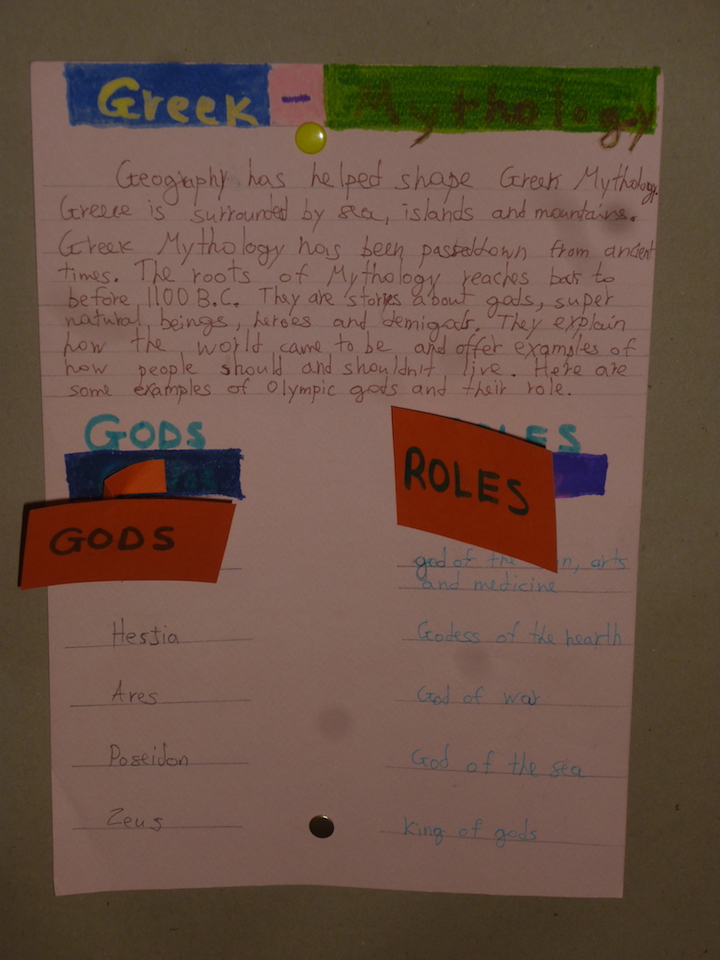 Greek - Mythology
Geography has helped shape Greek Mythology.
Greece is surrounded by sea, islands and mountains.
Greek Mythology has been passed down from ancient
times. The roots of Mythology reaches back to
before 1100 B.C. They are stories about gods, super
natural beings, heroes and demigods. They explain
how the world came to be and offer examples of
how people should and shouldn't live. Here are
some examples of Olympic gods and their role.
GODS
GODS ROLES
god of the arts
and medicine
Hestia Godess of the hearth
Ares God of war
Poseidon God of the sea
Zeus King of gods